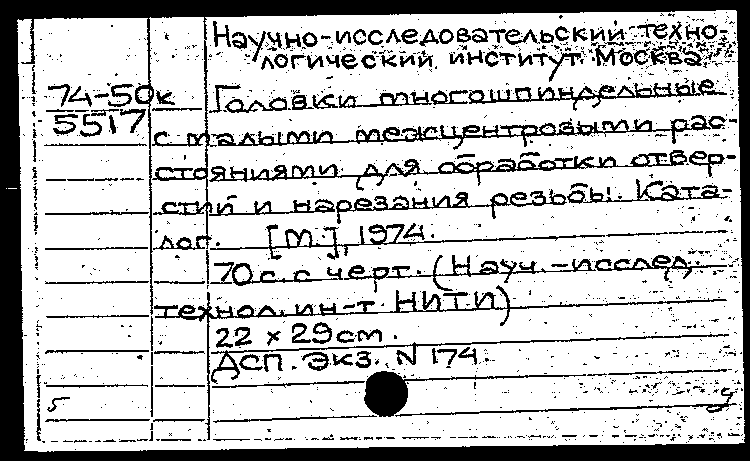 Научно-исследовательский техно-
логический институт. Москва
74-50к
5517
Головки многошпиндельные
с малыми межцентровыми рас-
стояниями для обработки отвер-
стий и нарезания резьбы. Ката-
лог. [М.], 1974.
70 с. с черт. (Науч.-исслед.
технол. ин-т НИТИ)
22 x 29 см.
ДСП. Экз. N 174.
5
у